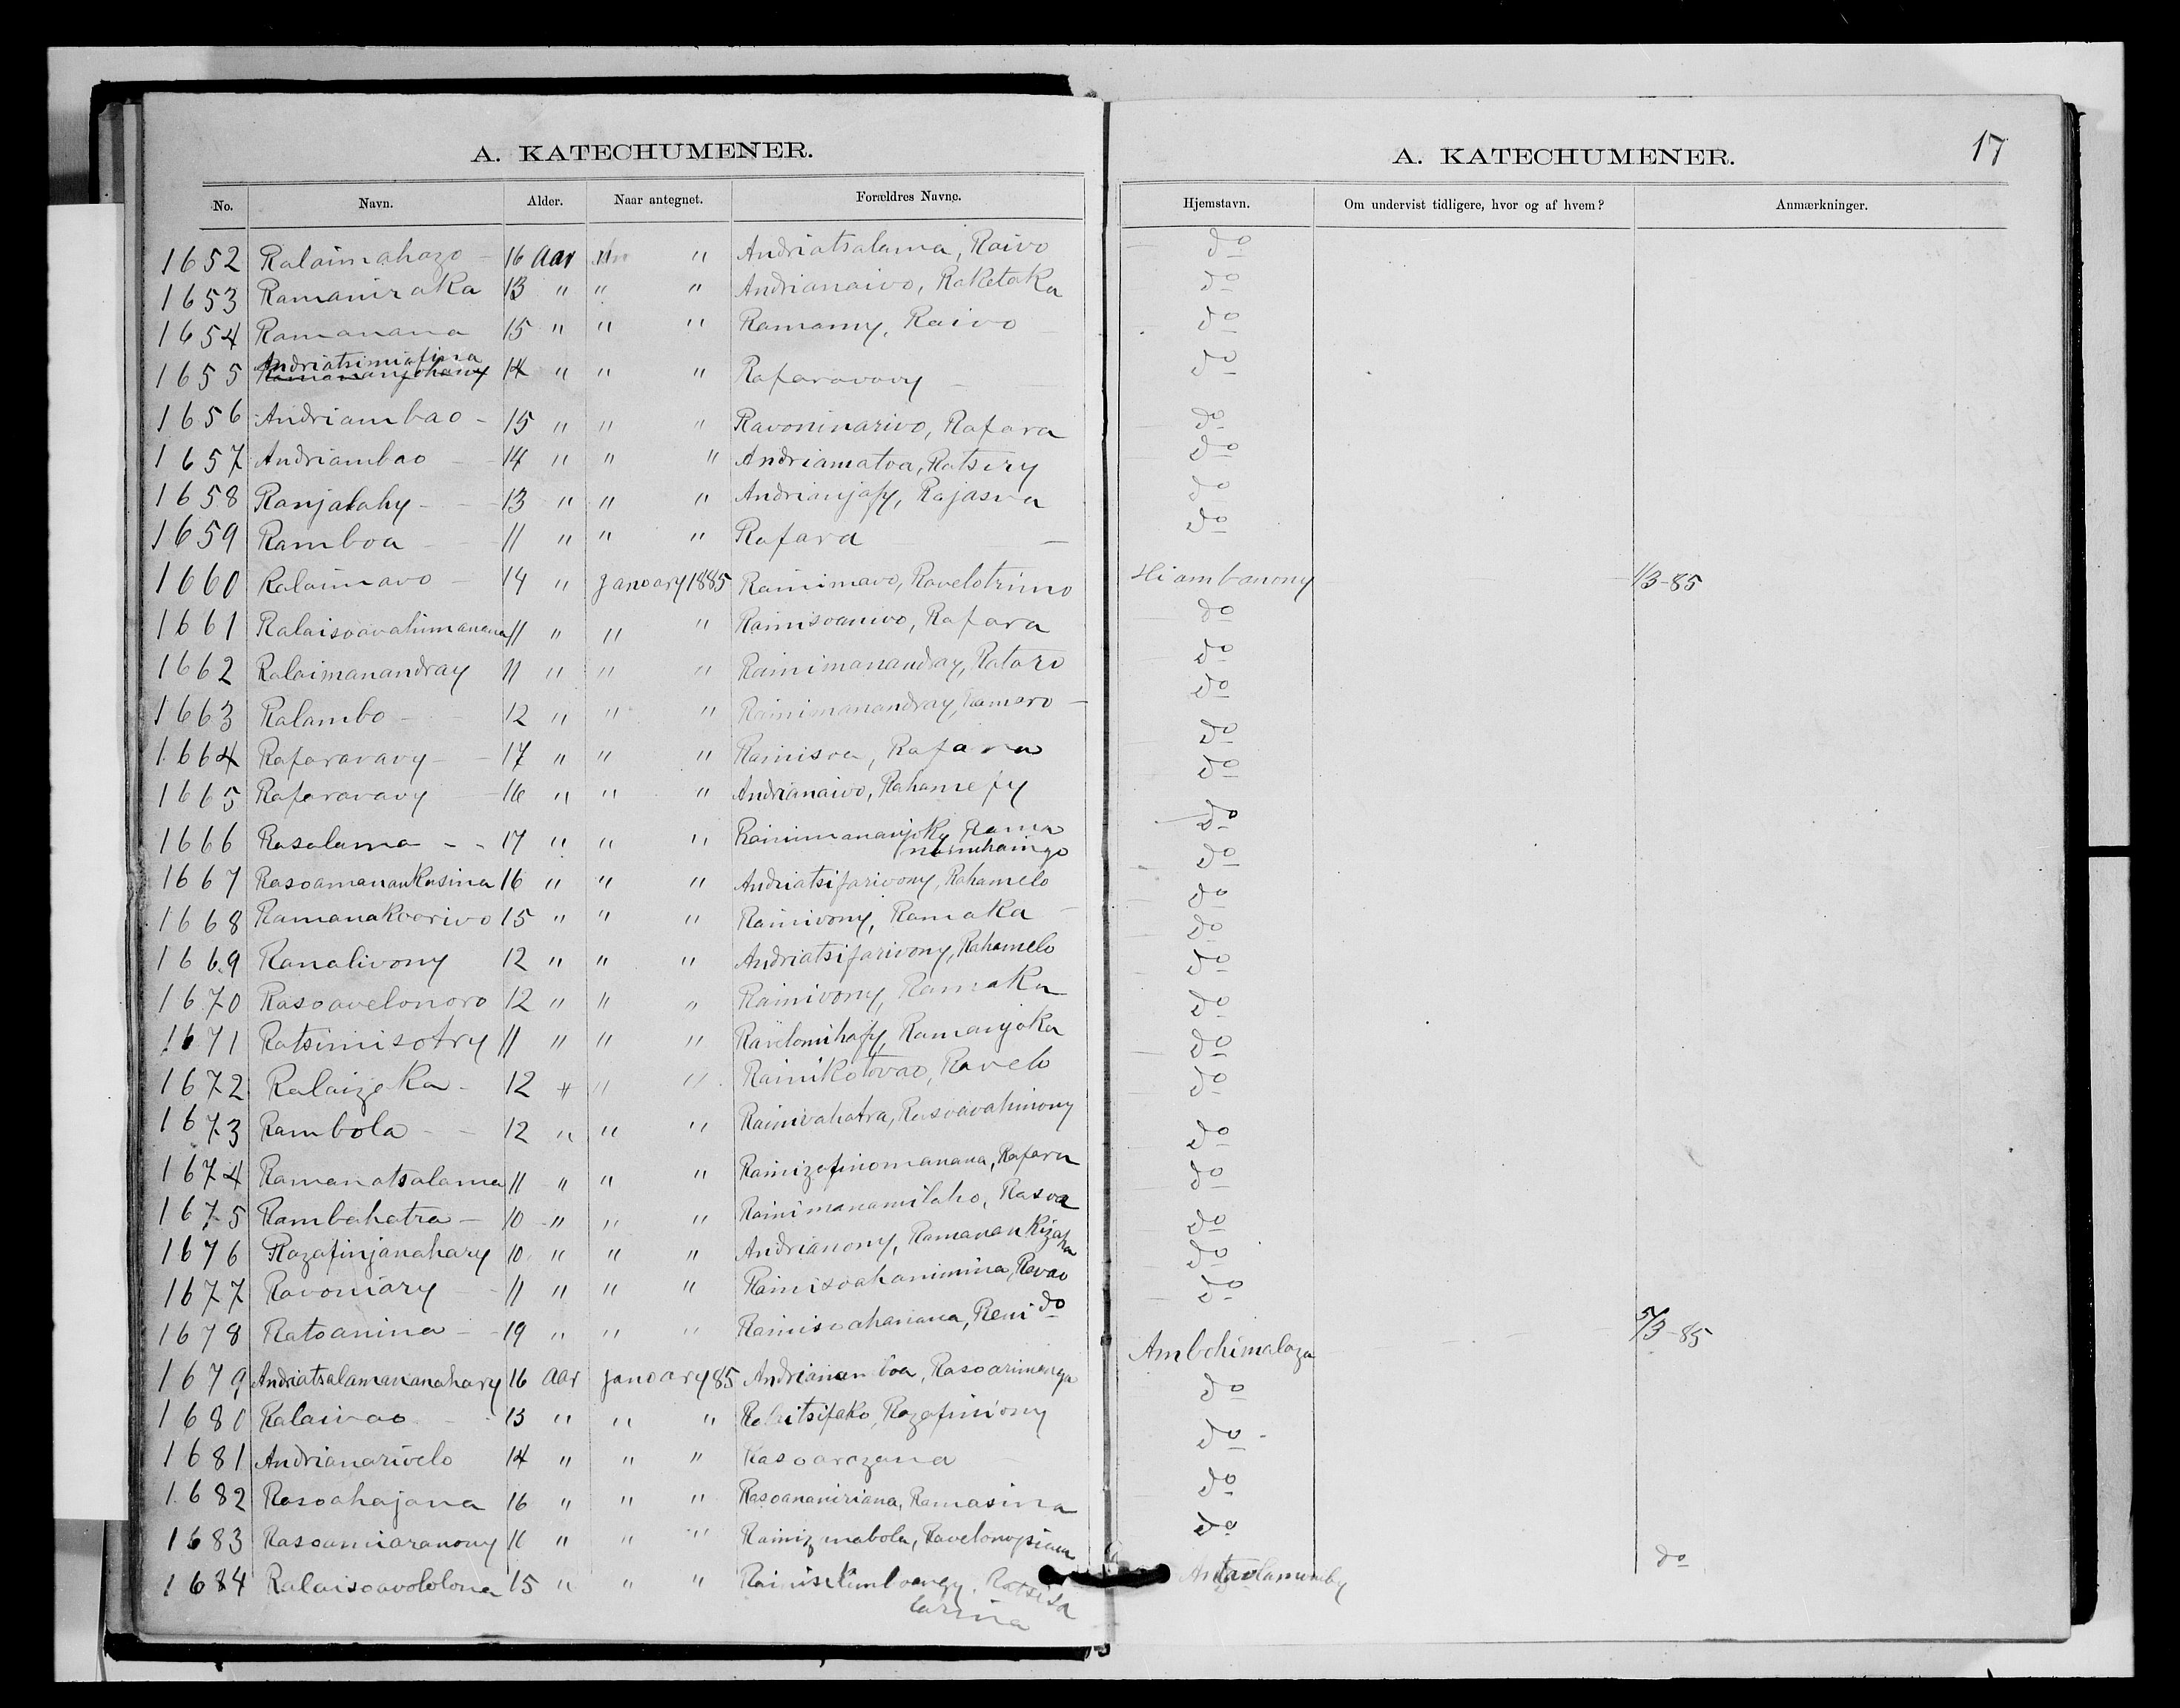 A. KATECHUMENER.
No. Navn. Alder. Naar antegnet. Forældres Navne.
1652 Ralaimahazo 16 Aar " " Andriatsalama, Raivo
1653 Ramaniraka 13 " " " Andrianaivo, Raketaka
1654 Ramanana 15 " " " Ramamy, Raivo
Andriatsimiafina
1655 Ramananjohary 14 " " " Rafaravavy
1656 Andriambao 15 " " " Ravoninarivo, Rafara
1657 Andriambao 14 " " " Andriamatoa, Ratsiry
1658 Ranjalahy 13 " " " Andrianjafy, Rajasoa
1659 Ramboa 11 " " " Rafara
1660 Ralaimavo 14 " Janoary 1885 Rainimavo, Ravelotrimo
1661 Ralaisoavahimanana 11 " " " Rainisoanivo, Rafara
1662 Ralaimanandray 11 " " " Rainimanandray, Rataro
1663 Ralambo 12 " " " Rainimanandray, Ramoro
1664 Rafaravavy 17 " " " Rainisoa, Rafara
1665 Rafaravavy 16 " " " Andrianaivo, Rahamefy
1666 Rasalama 17 " " " Rainimananjoky Rama
namihaingo
1667 Rasoamanankasina 16 " " " Andriatsifarivony, Rahamelo
1668 Ramanakoarivo 15 " " " Rainivony, Ramaka
1669 Ranalivony 12 " " " Andriatsifarivony, Rahamelo
1670 Rasoavelonoro 12 " " " Rainivony, Ramaka
1671 Ratsimisotry 11 " " " Ravelomihafy, Ramanjaka
1672 Ralaizeka 12 " " " Rainikotovao, Ravelo
1673 Rambola 12 " " " Rainivahatra, Rasoavahinony
1674 Ramanatsalama 11 " " " Rainizafinomanana, Rafara
1675 Rambahatra 10 " " " Rainimanamilaho, Rasoa
1676 Razafinjanahary 10 " " " Andrianony, Ramanankizafy
1677 Ravoniary 11 " " " Rainisoahanimina, Ravao
1678 Ratoanina 19 " " " Rainisoahaniana, Reni do
1679 Andriatsalamananahary 16 Aar Janoary 85 Andrianamboa, Rasoarimanga
1680 Ralaivao 13 " " " Ralaitsifako, Razafiniony
1681 Andrianarivelo 14 " " " Rasoarazana
1682 Rasoahajana 16 " " " Rasoananiriana, Ramasina
1683 Rasoamiaranony 11 " " "
1684 Ralaisoavololona 15 " " "
A. KATECHUMENER. 17
Hjemstavn. Om undervist tidligere, hvor og af hvem? Anmærkninger.
do
do
do
do
do
do
do
do
Hiambanony 1/3-85
do
do
do
do
do
do
do
do
do
do
do
do
do
do
do
do
do
do
Ambohimalaza 5/3-85
do
do
do
do
do